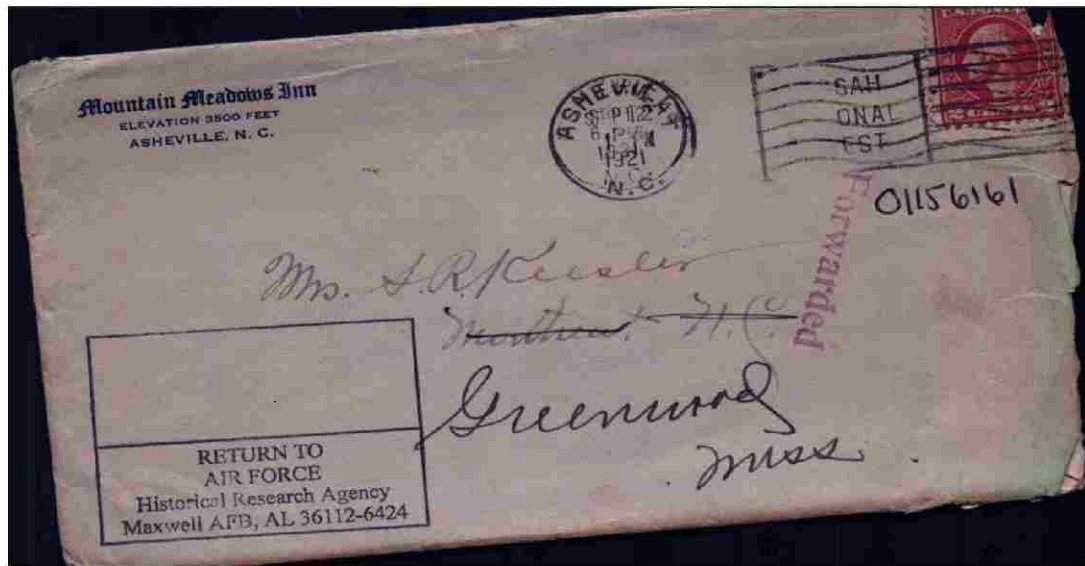 Mountain Meadows Inn
ELEVATION 3500 FEET
ASHEVILLE, N. C.
ASHEVILLE
SEP 12
1921
N.C.
SAH
ONAL
EST
01156161
Forwarded
Mrs. S.R. Keesler
Montreat N.C.
Greenwood
Miss.
RETURN TO
AIR FORCE
Historical Research Agency
Maxwell AFB, AL 36112-6424